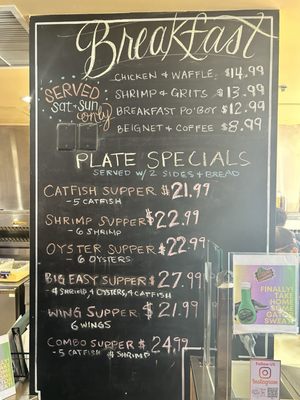 Breakfast
SERVED
SAT-SUN
ONLY
CHICKEN & WAFFLE $14.99
SHRIMP & GRITS $13.99
BREAKFAST PO'BOY $12.99
BEIGNET & COFFEE $8.99
PLATE SPECIALS
SERVED W/ 2 SIDES & BREAD
CATFISH SUPPER $21.99
- 5 CATFISH
SHRIMP SUPPER $22.99
- 6 SHRIMP
OYSTER SUPPER $22.99
- 6 OYSTERS
BIG EASY SUPPER $27.99
- 4 SHRIMP, 4 OYSTERS, 4 CATFISH
WING SUPPER $21.99
6 WINGS
COMBO SUPPER $24.99
- 5 CATFISH SHRIMP
FINALLY!
TAKE
HOME
SOME
GATOR
SWEAT
FOLLOW
Instagram